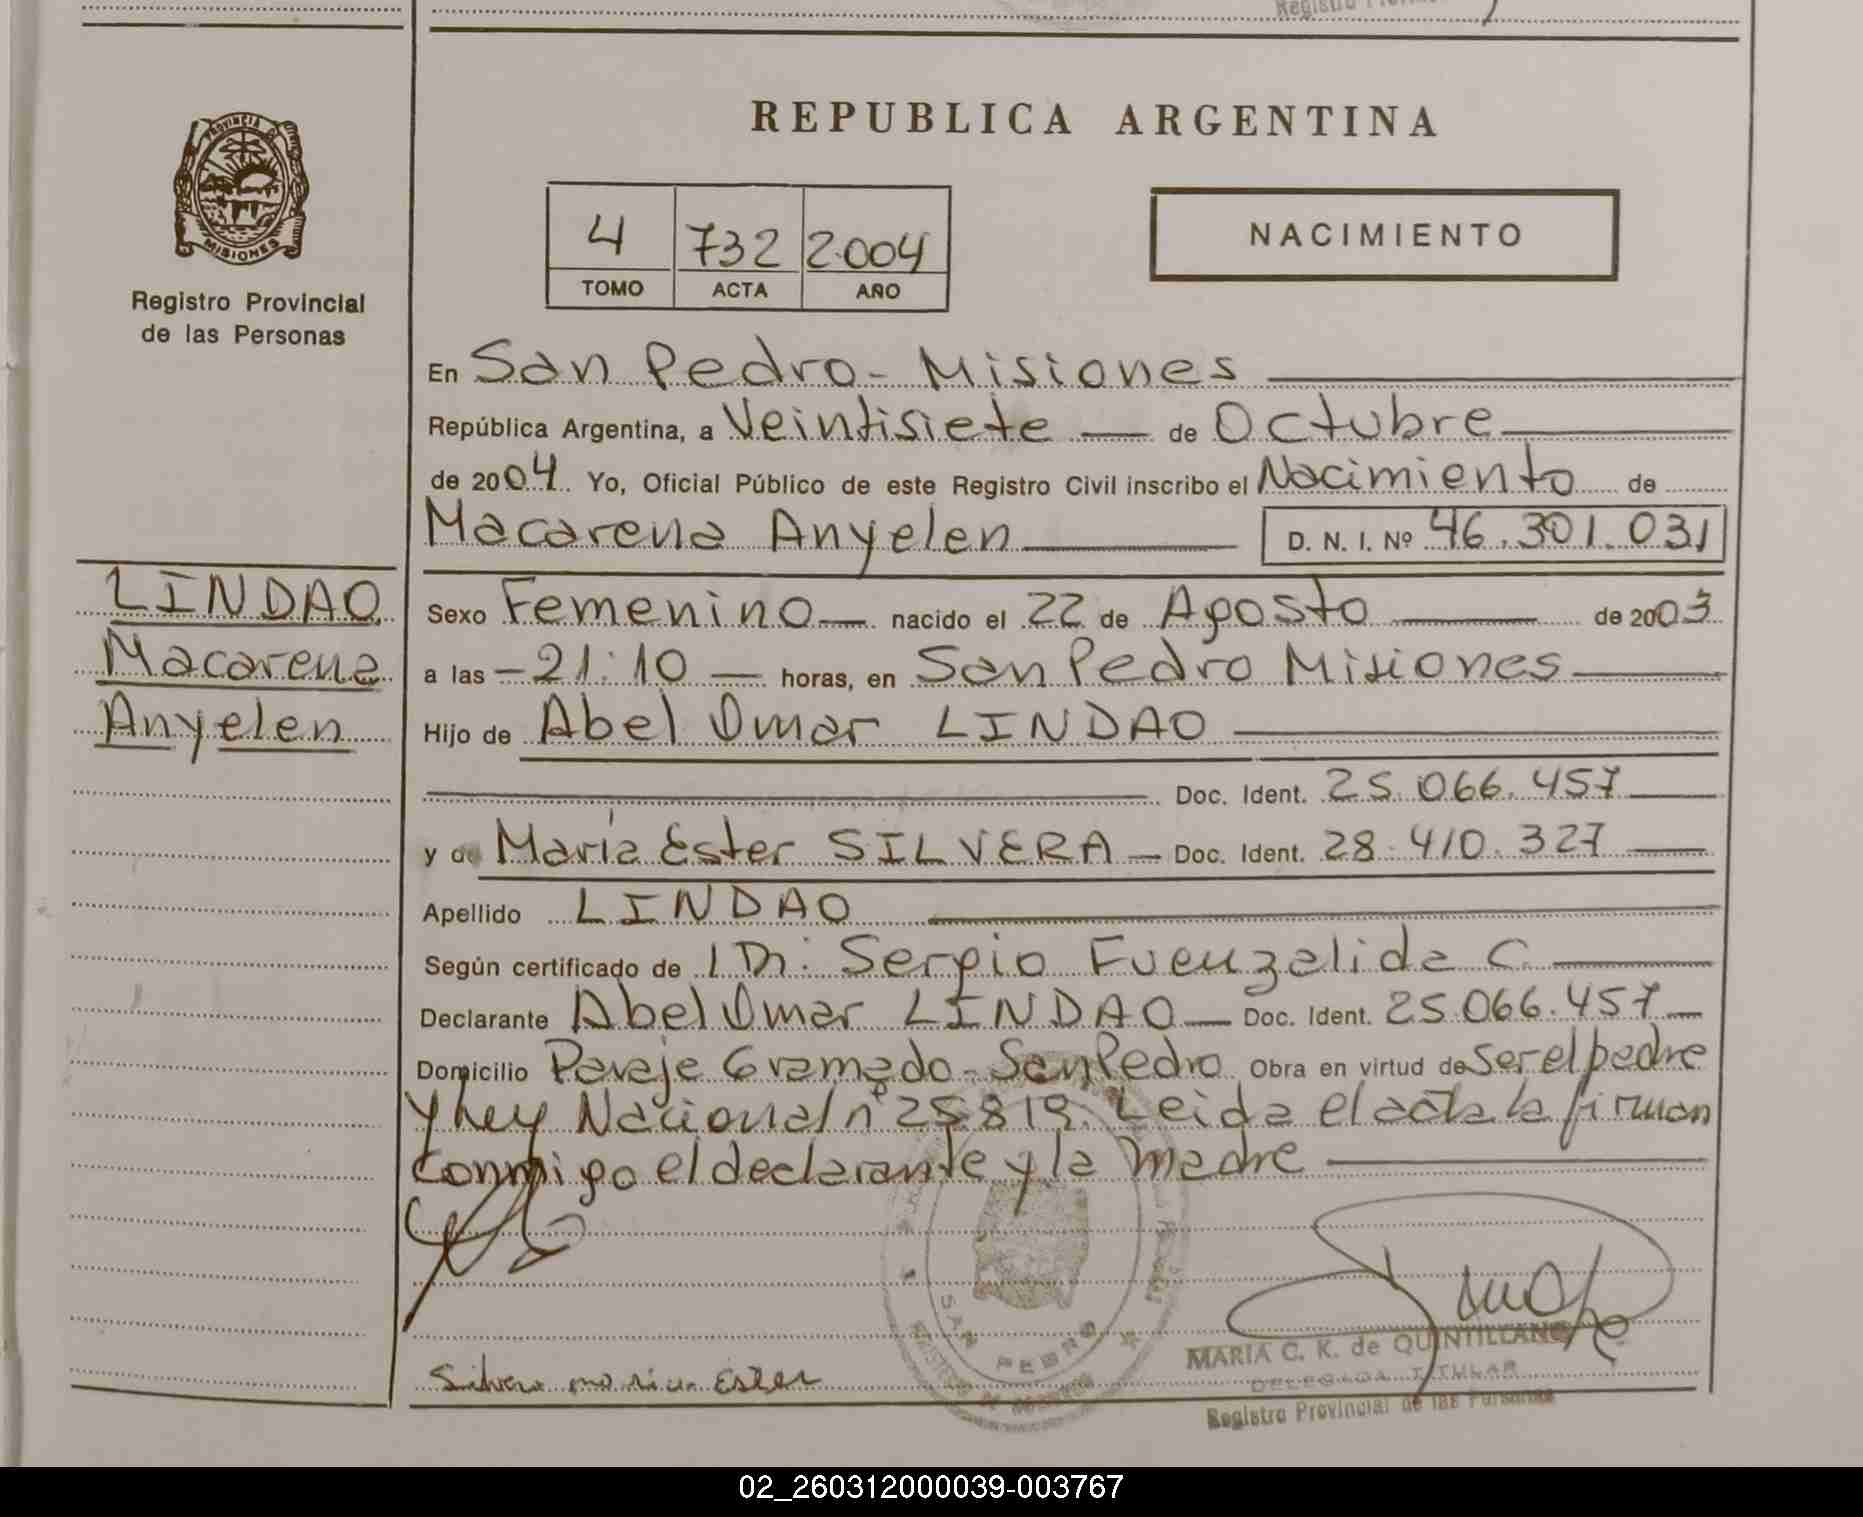 REPUBLICA ARGENTINA
PROVINCIA DE
MISIONES
Registro Provincial
de las Personas
4 732 2.004
TOMO ACTA AÑO
NACIMIENTO
En San Pedro - Misiones
República Argentina, a Veintisiete de Octubre
de 2004. Yo, Oficial Público de este Registro Civil inscribo el Nacimiento de
Macarena Anyelen D. N. I. Nº 46.301.031
LINDAO
Macarena
Anyelen
Sexo Femenino nacido el 22 de Agosto de 2003
a las - 21:10 horas, en San Pedro Misiones
Hijo de Abel Omar LINDAO
Doc. Ident. 25.066.457
y de María Ester SILVERA Doc. Ident. 28.410.327
Apellido LINDAO
Según certificado de Sergio Fuenzalida C.
Declarante Abel Omar LINDAO Doc. Ident. 25.066.457
Domicilio Paraje Gramado - San Pedro Obra en virtud de ser el padre
y Ley Nacional nº 25.819. Leida el acta la firman
conmigo el declarante y la madre
SAN PEDRO
Silvera maria Ester
MARIA C. K. de QUINTILLANO
DELEGADA TITULAR
Registro Provincial de las Personas
02_260312000039-003767